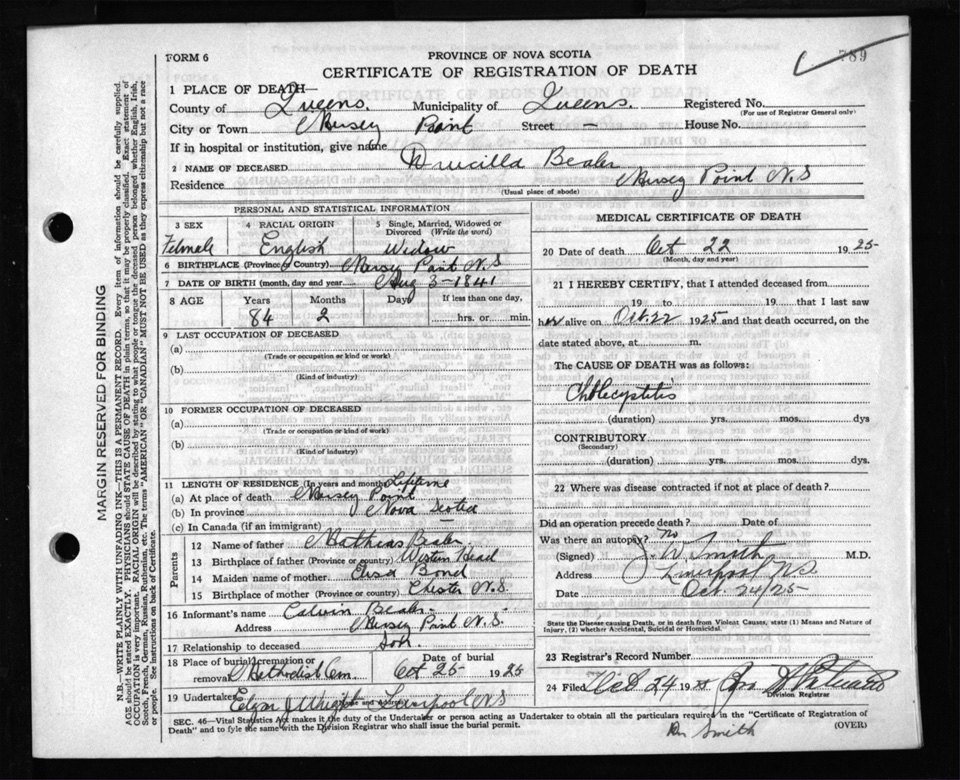 789
FORM 6
PROVINCE OF NOVA SCOTIA
CERTIFICATE OF REGISTRATION OF DEATH
1 PLACE OF DEATH—
County of Queens. Municipality of Queens. Registered No.
(For use of Registrar General only)
City or Town Mersey Point Street — House No.
If in hospital or institution, give name
2 NAME OF DECEASED Drucilla Beale
Residence Mersey Point N.S
(Usual place of abode)
PERSONAL AND STATISTICAL INFORMATION
3 SEX 4 RACIAL ORIGIN 5 Single, Married, Widowed or Divorced (Write the word)
Female English Widow
6 BIRTHPLACE (Province or Country) Mersey Point N.S
7 DATE OF BIRTH (month, day and year) Aug 3-1841
8 AGE Years Months Days If less than one day,
84 2 hrs. or min.
9 LAST OCCUPATION OF DECEASED
(a)
(Trade or occupation or kind or work)
(b)
(Kind of industry)
10 FORMER OCCUPATION OF DECEASED
(a)
(Trade or occupation or kind of work)
(b)
(Kind of industry)
11 LENGTH OF RESIDENCE (In years and months) Lifetime
(a) At place of death Mersey Point
(b) In province Nova Scotia
(c) In Canada (if an immigrant) —
Parents
12 Name of father Mathias
13 Birthplace of father (Province or country) Western Head
14 Maiden name of mother Eliza Bond
15 Birthplace of mother (Province or country) Chester N.S.
16 Informant's name Calvin Beale
Address Mersey Point N.S.
17 Relationship to deceased Son
18 Place of burial, cremation or removal Methodist Cem Date of burial Oct 25 1925
19 Undertaker Liverpool NS
Name and Address
MEDICAL CERTIFICATE OF DEATH
20 Date of death Oct 22 1925
(Month, day and year)
21 I HEREBY CERTIFY, that I attended deceased from
19 to 19 that I last saw
her alive on Oct. 22 1925 and that death occurred, on the
date stated above, at m.
The CAUSE OF DEATH was as follows:
Cholecystitis
(duration) yrs. mos. dys
CONTRIBUTORY
(Secondary)
(duration) yrs. mos. dys.
22 Where was disease contracted if not at place of death?
Did an operation precede death? Date of
Was there an autopsy? no
(Signed) J. W. Smith M.D.
Address Liverpool N.S.
Date Oct. 24/25
State the Disease causing Death, or in death from Violent Causes, state (1) Means and Nature of
Injury, (2) whether Accidental, Suicidal or Homicidal.
23 Registrar's Record Number
24 Filed Oct 24 1925
Division Registrar
SEC. 46—Vital Statistics Act makes it the duty of the Undertaker or person acting as Undertaker to obtain all the particulars required in the "Certificate of Registration of
Death" and to fyle the same with the Division Registrar who shall issue the burial permit.
(OVER)
Dr Smith
MARGIN RESERVED FOR BINDING
N.B.—WRITE PLAINLY WITH UNFADING INK—THIS IS A PERMANENT RECORD. Every item of information should be carefully supplied.
AGE should be stated EXACTLY. PHYSICIANS should STATE CAUSE OF DEATH in plain terms, so that it may be properly classified. Exact statement of
OCCUPATION is very important. RACIAL ORIGIN will be described by stating to what people or tongue the deceased person belonged whether English, Irish,
Scotch, French, German, Russian, Ruthenian, etc. The terms "AMERICAN" OR "CANADIAN" MUST NOT BE USED as they express citizenship but not a race
or people. See instructions on back of Certificate.